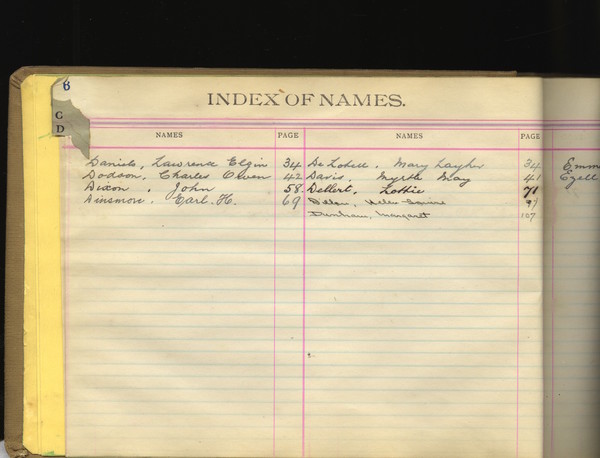 6
C
D
INDEX OF NAMES.
NAMES PAGE NAMES PAGE
Daniels, Lawrence Elgin 34 De Lobell, Mary Layher 34 Emm
Dodson, Charles Owen 42 Davis, Myrtle May 41 Ezell
Dixon, John 58 Dellert, Lottie 71
Dinsmore, Earl H. 69 Dillon, Helen 97
Dunham, Margaret 107